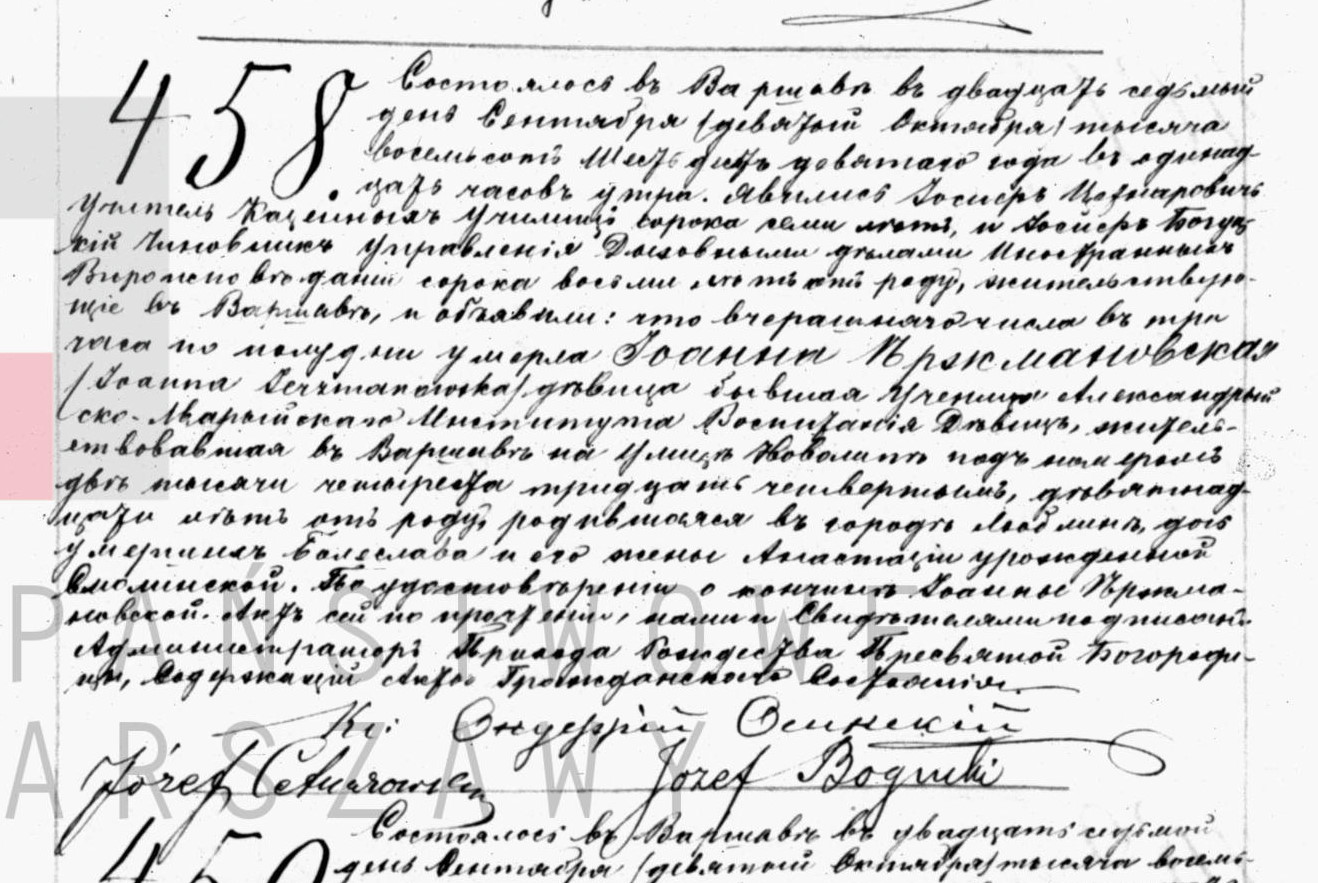 458.
Состоялось въ Варшавѣ въ двадцать седьмый
день Сентября /девятый Октября/ тысяча
восемьсотъ шестьдесятъ девятаго года въ одинад-
цать часовъ утра. Явились Іосифъ Цетнаровичъ
Учитель Казенныхъ Училищъ сорока семи лѣтъ, и Іосифъ Богуц-
кій Чиновникъ Управленія Духовными дѣлами Иностранныхъ
Вѣроисповѣданій сорока восьми лѣтъ отъ роду, жительствую-
щіе въ Варшавѣ, и объявили: что вчерашняго числа въ три
часа по полудни умерла Іоанна Іержмановская
/Joanna Jerzmanowska/ дѣвица бывшая Ученица Александрый-
ско-Марыйскаго Института Воспитанія Дѣвицъ, житель-
ствовавшая въ Варшавѣ на улицѣ Новолипѣ подъ номеромъ
двѣ тысячи четыреста тридцать четвертымъ, девятнад-
цати лѣтъ отъ роду, родившаяся въ городѣ Люблинѣ, дочь
умершихъ Болеслава и его жены Анастазіи урожденной
Смолинской. По удостовѣреніи о кончинѣ Іоанны Іержма-
новской. Актъ сей по прочтеніи, нами и Свидѣтелями подписанъ.
Администраторъ Прихода Рождества Пресвятой Богороди-
цы, Содержащій Акты Гражданскаго Состоянія.
Кс: Осинскій
Józef Jozef Bogucki
PAŃSTWOWE
ARSZAWY
459
Состоялось въ Варшавѣ въ двадцать седьмой
день Сентября /девятой Октября/ тысяча восемь-